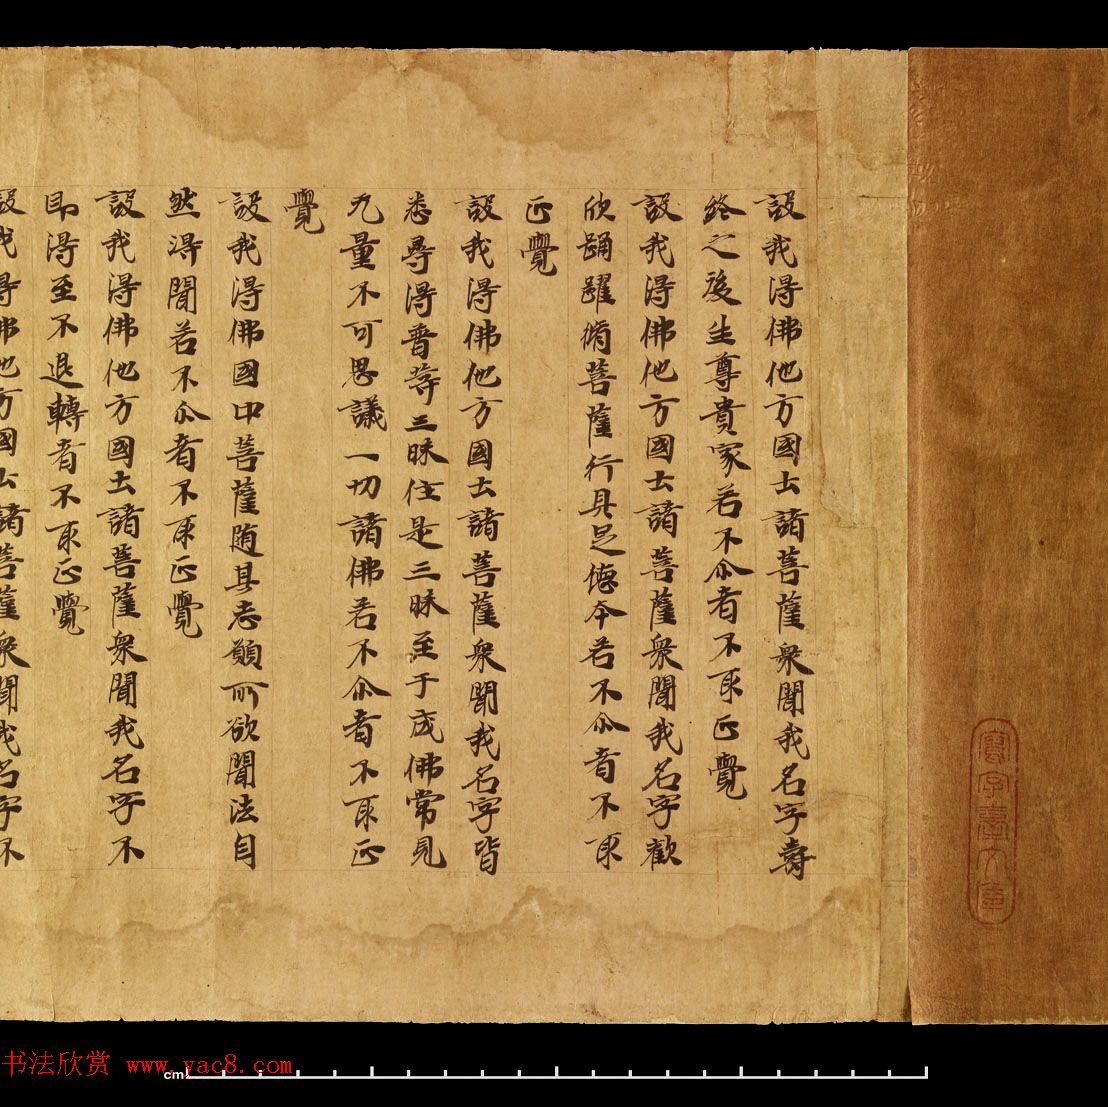 設我得佛他方國土諸菩薩衆聞我名字壽
終之後生尊貴家若不尒者不取正覺
設我得佛他方國土諸菩薩衆聞我名字歡
欣踊躍脩菩薩行具足德本若不尒者不取
正覺
設我得佛他方國土諸菩薩衆聞我名字皆
悉尋得普等三昧住是三昧至于成佛常見
无量不可思議一切諸佛若不尒者不取正
覺
設我得佛國中菩薩随其志願所欲聞法自
然得聞若不尒者不取正覺
設我得佛他方國土諸菩薩衆聞我名字不
即得至不退轉者不取正覺
設我得佛他方國土諸菩薩衆聞我名字不
寫字臺文庫
书法欣赏 www.yac8.com
cm